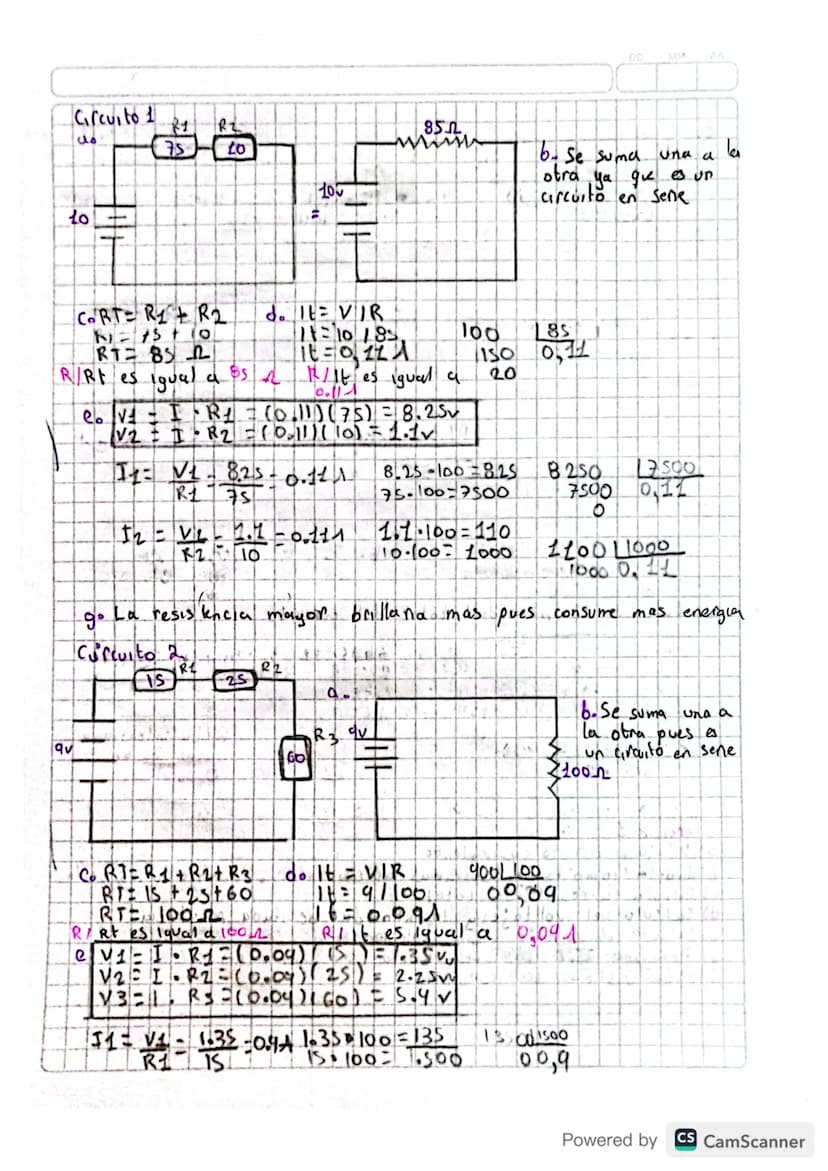 Circuito 1
a.
R1 R2
75 10
10
85Ω
10v
=
b. Se suma una a la
otra ya que es un
circuito en serie
c. RT= R1 + R2
RT= 75 + 10
RT= 85 Ω
R/Rt es igual a 85 Ω
d. It= V/R
It= 10/85
It= 0,11A
R/It es igual a
0.11A
100 85
150 0,11
20
e. V1 = I · R1 = (0.11)(75) = 8.25v
V2 = I · R2 = (0.11)(10) = 1.1v
I1= V1/R1 = 8.25/75 = 0.11A
8.25·100 = 825
75·100=7500
8250 7500
7500 0,11
0
I2 = V2/R2 = 1.1/10 = 0.11A
1.1·100=110
10·100= 1000
1100 1000
1000 0,11
g. La resistencia mayor brillaria mas pues consume mas energia
Circuito 2
15 R1 25 R2
9v
R3
60
a.
9v
100Ω
b. Se suma una a
la otra pues es
un circuito en serie
c. RT= R1+R2+R3
RT= 15 + 25+60
RT= 100Ω
R/Rt es igual a 100Ω
d. It = V/R
It= 9/100
It= 0.09A
R/ It es igual a 0,09A
900 100
00,09
e V1= I · R1=(0.09)(15)=1.35v
V2= I · R2=(0.09)(25)= 2.25v
V3=I. R3=(0.09)(60) = 5.4v
I1= V1/R1 = 1.35/15 =0.9A
1.35·100=135
15·100= 1.500
1500
00,9
Powered by CS CamScanner